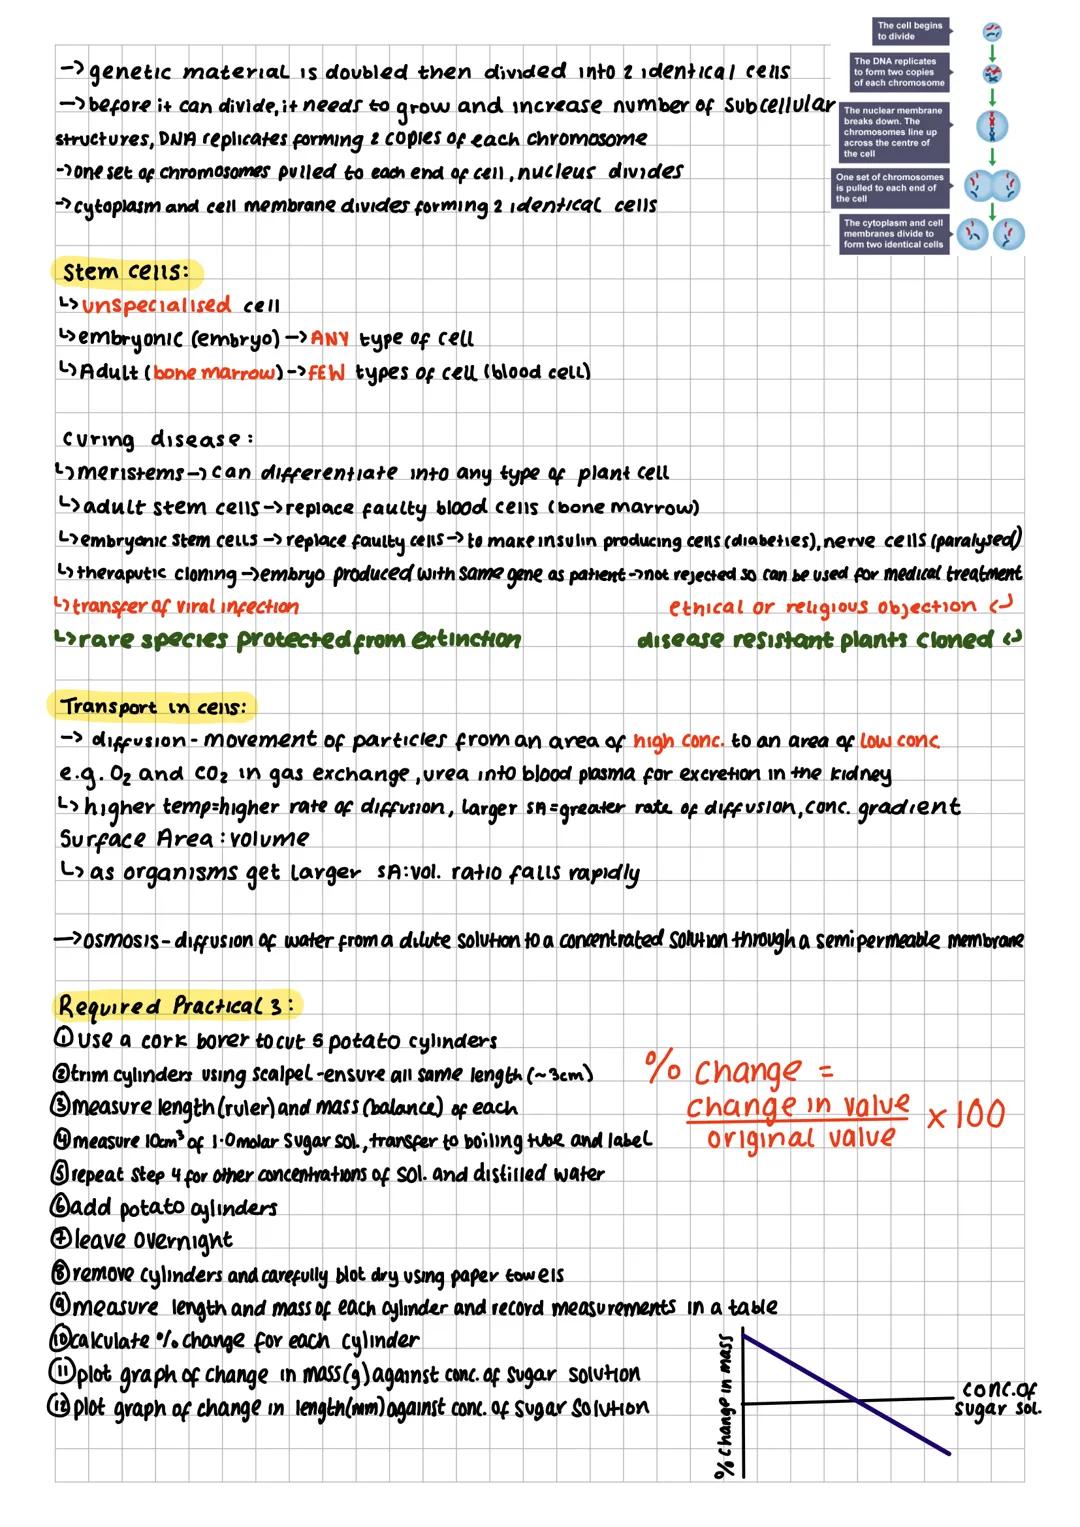 The cell begins
to divide
The DNA replicates
to form two copies
of each chromosome
The nuclear membrane
breaks down. The
chromosomes line up
across the centre of
the cell
One set of chromosomes
is pulled to each end of
the cell
The cytoplasm and cell
membranes divide to
form two identical cells
-> genetic material is doubled then divided into 2 identical cells
-> before it can divide, it needs to grow and increase number of subcellular
structures, DNA replicates forming 2 copies of each chromosome
-> one set of chromosomes pulled to each end of cell, nucleus divides
-> cytoplasm and cell membrane divides forming 2 identical cells
Stem cells:
↳ unspecialised cell
↳ embryonic (embryo) -> ANY type of cell
↳ Adult (bone marrow) -> FEW types of cell (blood cell)
curing disease:
↳ meristems -> can differentiate into any type of plant cell
↳ adult stem cells -> replace faulty blood cells (bone marrow)
↳ embryonic stem cells -> replace faulty cells -> to make insulin producing cells (diabeties), nerve cells (paralysed)
↳ theraputic cloning -> embryo produced with same gene as patient -> not rejected so can be used for medical treatment
↳ transfer of viral infection ethical or religious objection ↲
↳ rare species protected from extinction disease resistant plants cloned ↲
Transport in cells:
-> diffusion - movement of particles from an area of high conc. to an area of low conc
e.g. O₂ and CO₂ in gas exchange, urea into blood plasma for excretion in the kidney
↳ higher temp=higher rate of diffusion, larger SA=greater rate of diffusion, conc. gradient
Surface Area : volume
↳ as organisms get larger SA:vol. ratio falls rapidly
-> osmosis - diffusion of water from a dilute solution to a concentrated solution through a semi permeable membrane
Required Practical 3:
① use a cork borer to cut 5 potato cylinders
② trim cylinders using scalpel - ensure all same length (~3cm)
③ measure length (ruler) and mass (balance) of each
④ measure 10cm³ of 1.0 molar sugar sol., transfer to boiling tube and label
⑤ repeat step 4 for other concentrations of sol. and distilled water
⑥ add potato cylinders
⑦ leave overnight
⑧ remove cylinders and carefully blot dry using paper towels
⑨ measure length and mass of each cylinder and record measurements in a table
⑩ calculate % change for each cylinder
⑪ plot graph of change in mass (g) against conc. of sugar solution
⑫ plot graph of change in length (mm) against conc. of sugar solution
% change =
change in value
original value
x 100
% change in mass
conc. of
sugar sol.